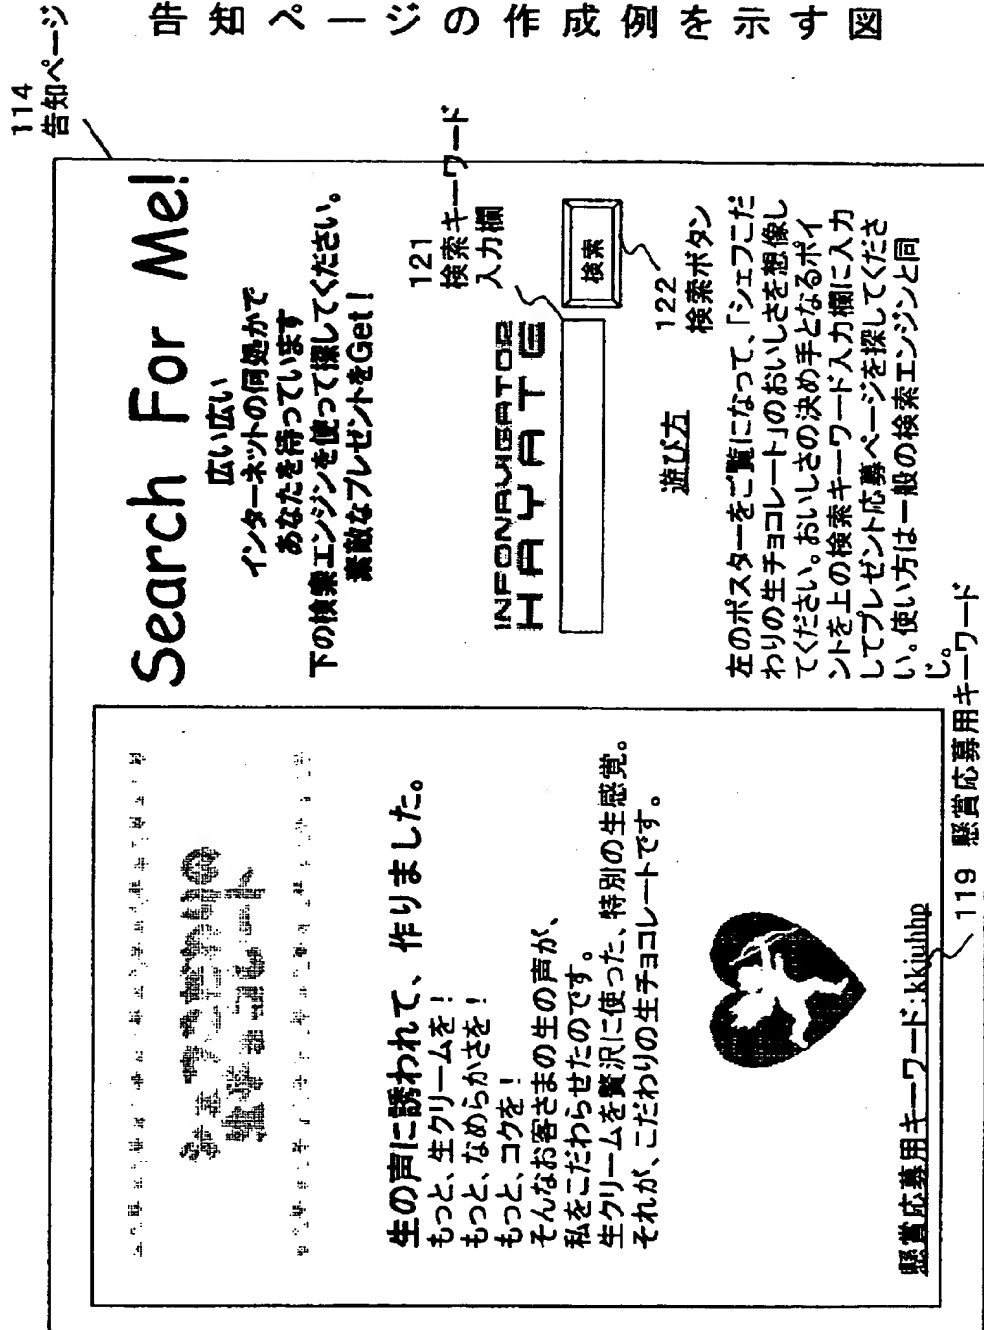 告知ページの作成例を示す図
114
告知ページ
Search For Me!
広い広い
インターネットの何処かで
あなたを待っています
下の検索エンジンを使って探してください。
素敵なプレゼントをGet!
INFONAVIGATOR
HAYATE
121
検索キーワード
入力欄
検索
122
検索ボタン
遊び方
左のポスターをご覧になって、「シェフこだ
わりの生チョコレート」のおいしさを想像し
てください。おいしさの決め手となるポイ
ントを上の検索キーワード入力欄に入力
してプレゼント応募ページを探してくださ
い。使い方は一般の検索エンジンと同
じ。
シェフこだわりの
生チョコレート
生の声に誘われて、作りました。
もっと、生クリームを!
もっと、なめらかさを!
もっと、コクを!
そんなお客さまの生の声が、
私をこだわらせたのです。
生クリームを贅沢に使った、特別の生感覚。
それが、こだわりの生チョコレートです。
懸賞応募用キーワード:kkjuhhp
119 懸賞応募用キーワード